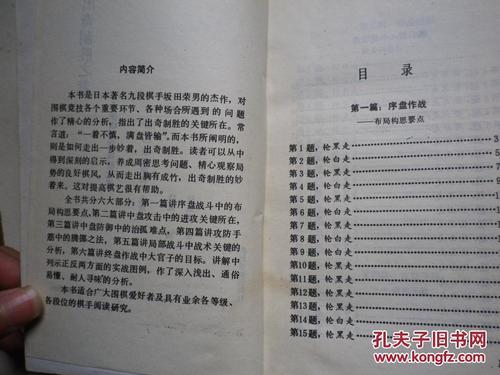 内容简介
本书是日本著名九段棋手坂田荣男的杰作，对
围棋竞技各个重要环节、各种场合所遇到的问题
作了精心的分析，指出了出奇制胜的关键所在。常
言道：“一着不慎，满盘皆输”。而本书所阐明的，
则是如何走出一步妙着，出奇制胜。读者可以从中
得到深刻的启示，养成周密思考问题、精心观察局
势的良好棋风，从而走出胸有成竹，出奇制胜的妙
着来。这对提高棋艺很有帮助。
全书共分六大部分：第一篇讲序盘战斗中的布
局构思要点，第二篇讲中盘攻击中的进攻关键所在，
第三篇讲中盘防御中的治孤难点，第四篇讲攻防手
筋中的腾挪之法，第五篇讲局部战斗中战术关键的
分析，第六篇讲终盘作战中大官子的目标。讲解中
列示正反两方面的实战图例，作了深入浅出、通俗
易懂、耐人寻味的分析。
本书适合广大围棋爱好者及具有业余各等级、
各段位的棋手阅读研究。
目 录
第一篇：序盘作战
——布局构思要点
第1题，枪黑走 3
第2题，枪白走 5
第3题，枪黑走 7
第4题，枪白走 9
第5题，枪黑走
第6题，枪白走
第7题，枪黑走
第8题，枪白走
第9题，枪白走
第10题，枪黑走
第11题，枪黑走
第12题，枪黑走
第13题，枪黑走
第14题，枪白走
第15题，枪黑走
孔夫子旧书网
www.kongfz.com